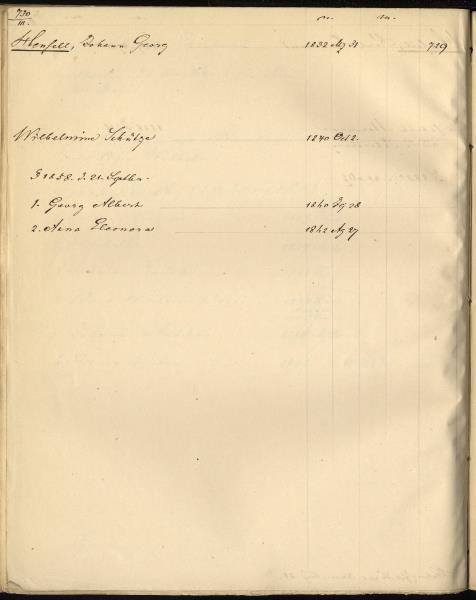 730
m.
n. m.
Henfell, Johann Georg 1832 Ag 31 729
Wilhelmine Schütze 1840 Oct 2.
1858. d. 21. Septbr.
1. Georg Albert 1860 28
2. Anna Eleonora 1862 Ag 27